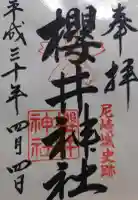 奉拝
尼崎城史跡
櫻井神社
櫻井神社
平成三十年四月四日